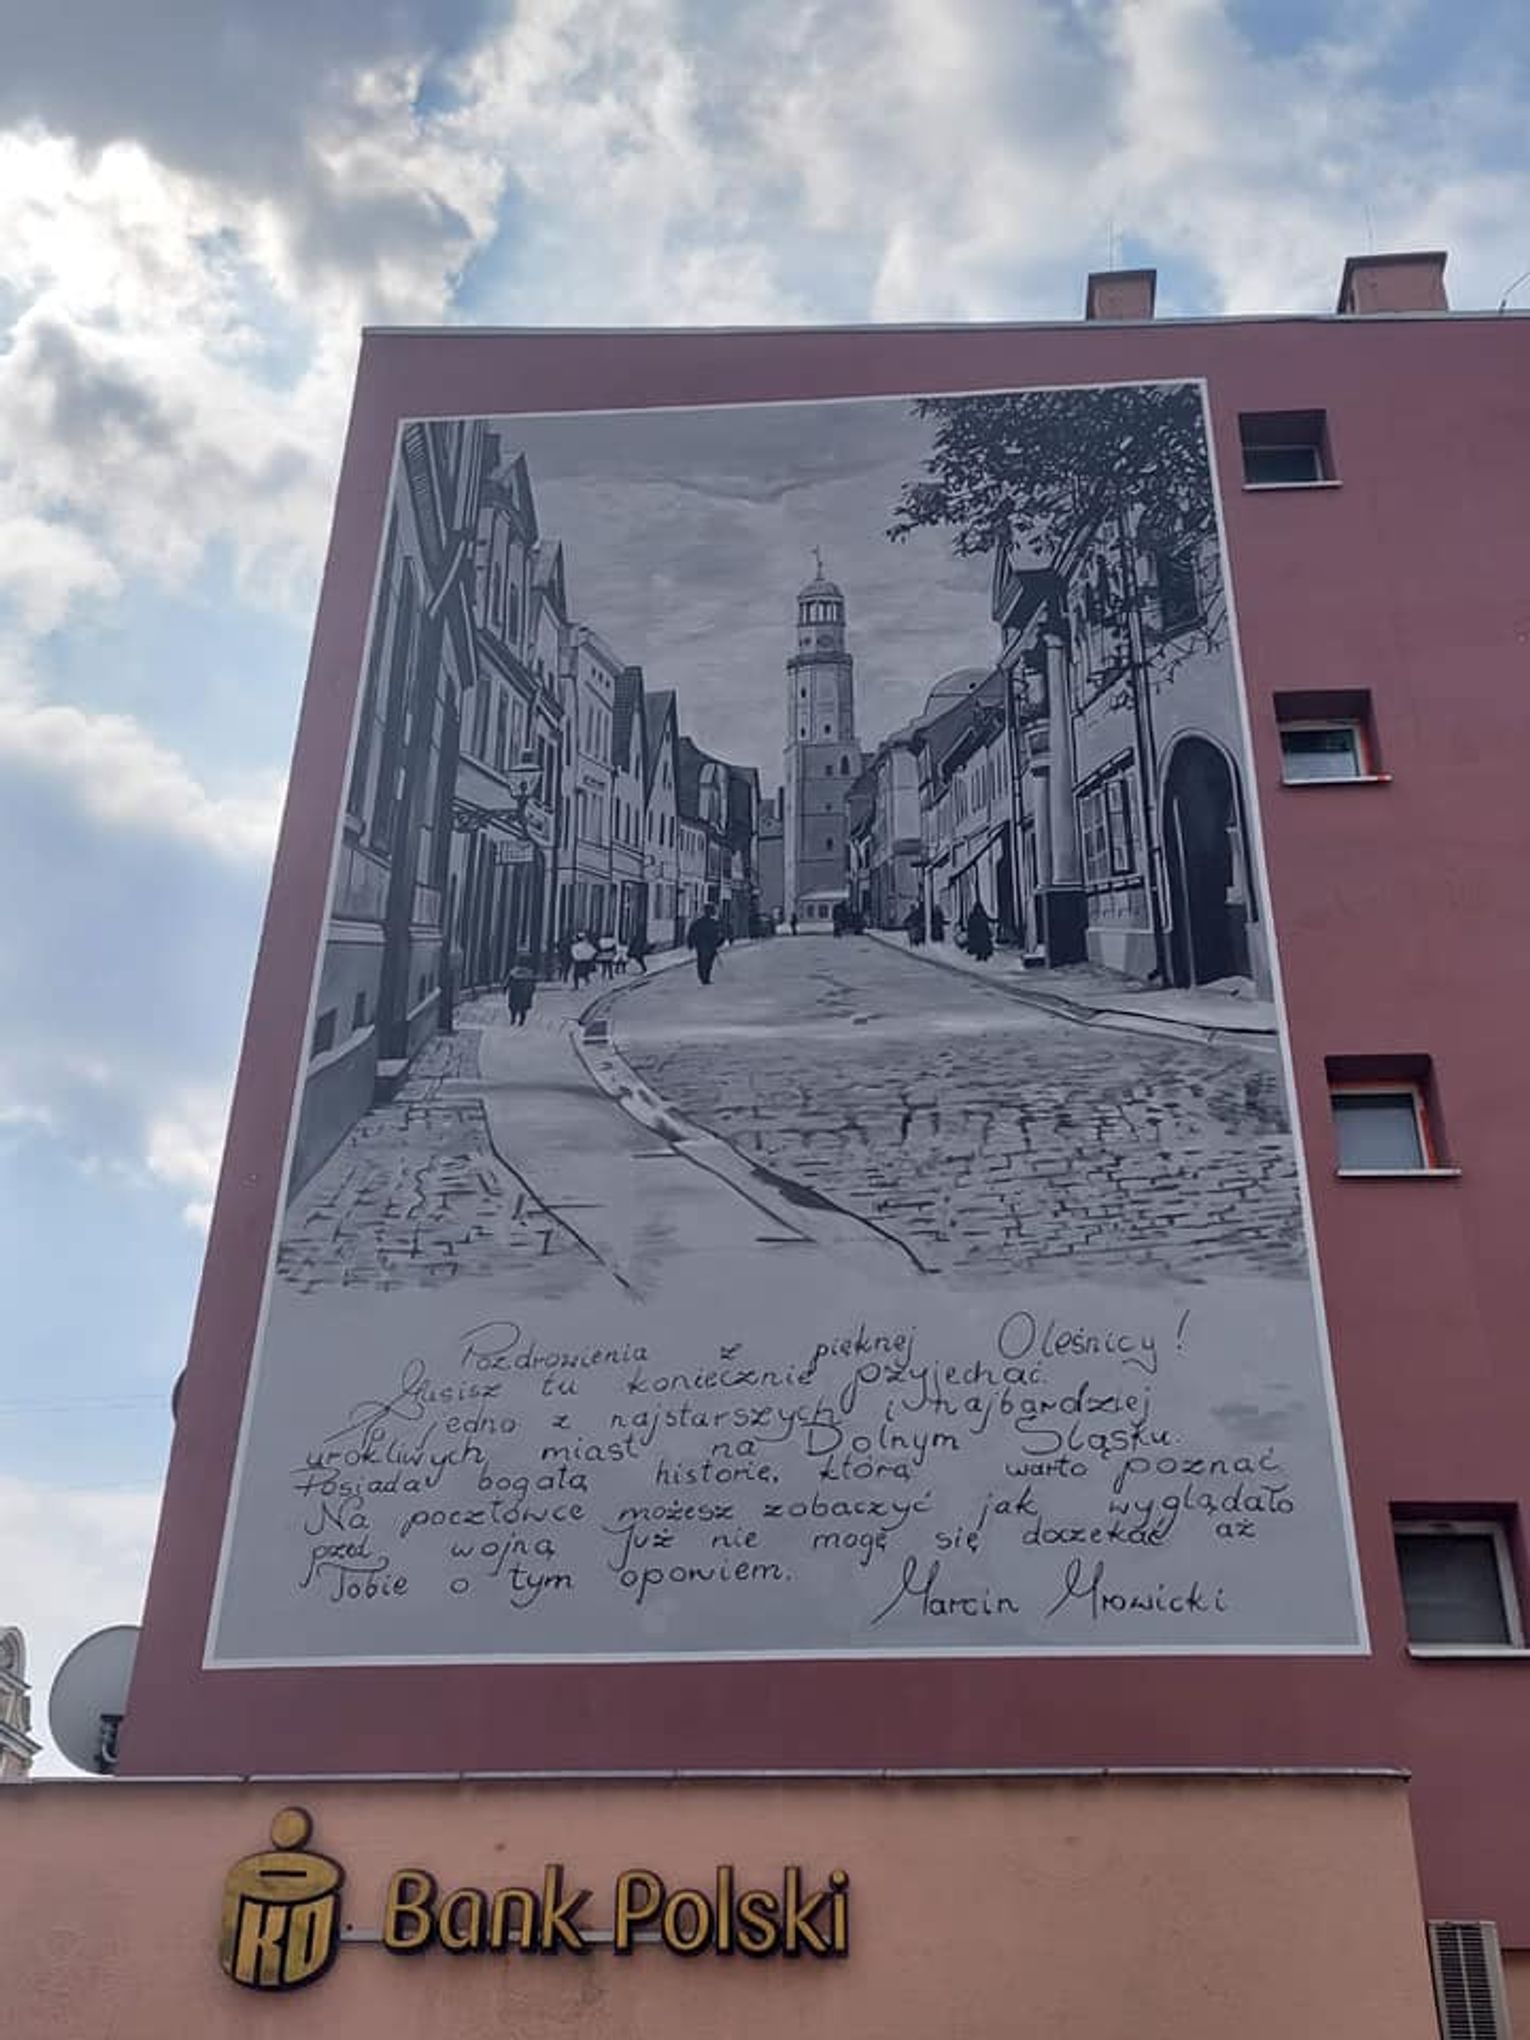 Pozdrowienia z pięknej Oleśnicy!
Musisz tu koniecznie przyjechać.
To jedno z najstarszych i najbardziej
urokliwych miast na Dolnym Śląsku.
Posiada bogatą historię, którą warto poznać
Na pocztówce możesz zobaczyć jak wyglądało
przed wojną Już nie mogę się doczekać aż
Tobie o tym opowiem.
Marcin Mrowicki
PKO Bank Polski